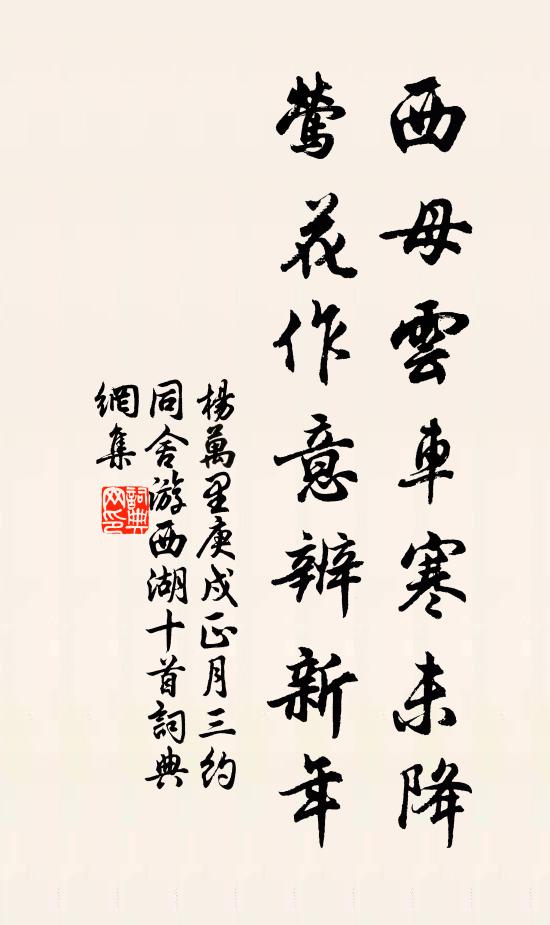 西母雲車寒未降
鶯花作意辨新年
楊萬里庚戌正月三約
同舍游西湖十首詞典
網集
詞典
网印